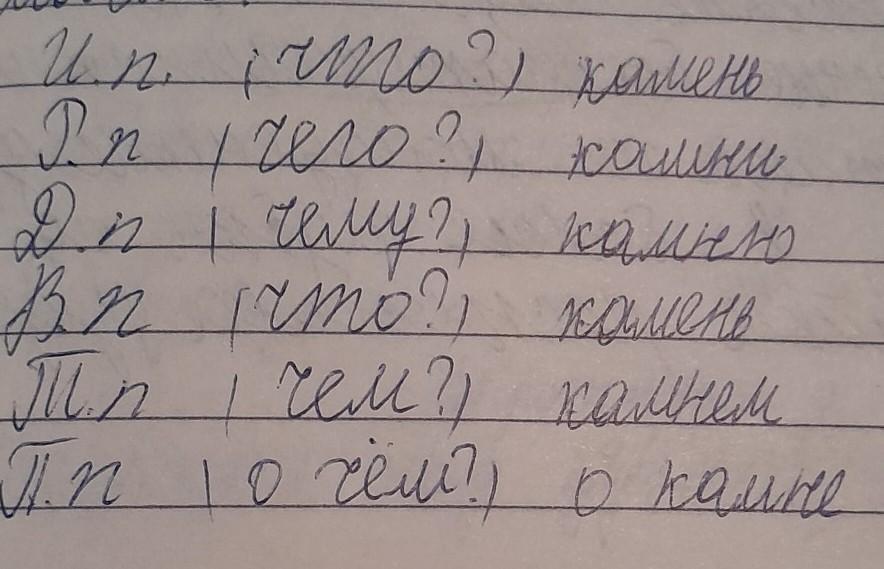 И.п. (что?) камень
Р.п (чего?) камни
Д.п (чему?) камню
В.п (что?) камень
Т.п (чем?) камнем
П.п (о чём?) о камне